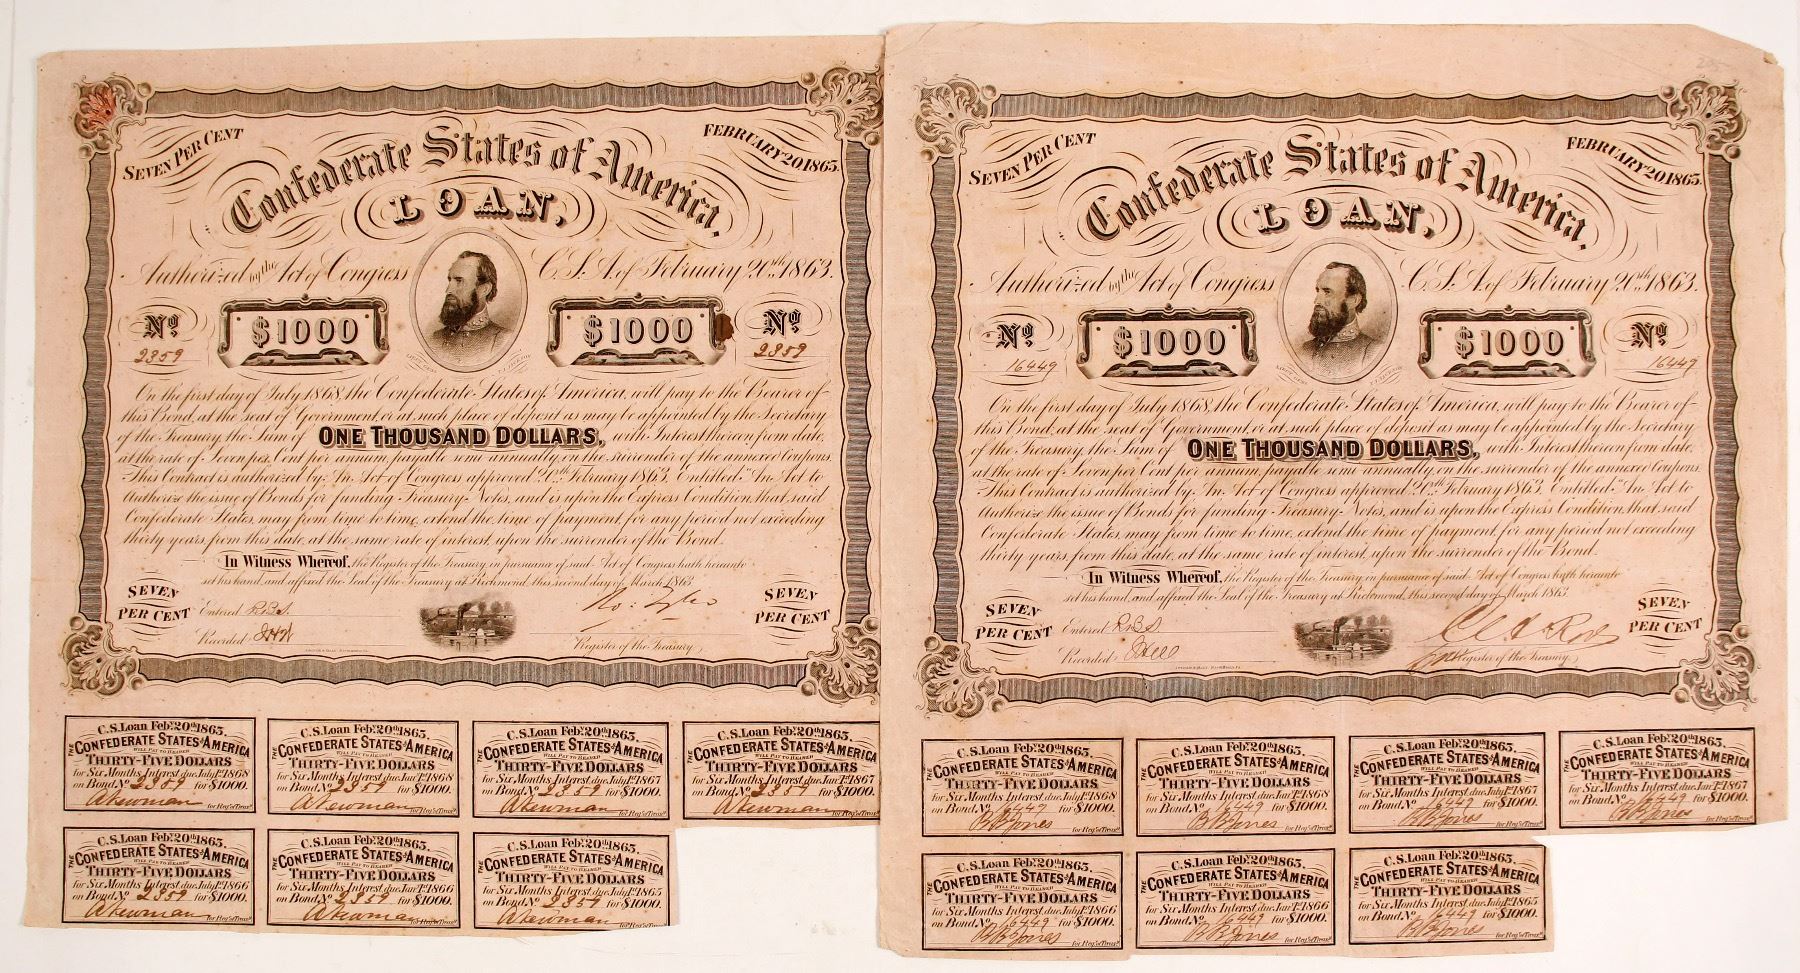 SEVEN PER CENT
FEBRUARY 20 1863.
Confederate States of America.
LOAN,
Authorized by the Act of Congress C.S.A. of February 20th 1863.
No $1000 $1000 No
2359 2359
On the first day of July 1868, the Confederate States of America, will pay to the Bearer of
this Bond, at the seat of Government, or at such place of deposit as may be appointed by the Secretary
of the Treasury, the Sum of ONE THOUSAND DOLLARS, with Interest thereon from date,
at the rate of Seven per Cent per annum, payable semi annually, on the surrender of the annexed Coupons.
This Contract is authorized by An Act of Congress approved 20th February 1863, Entitled "An Act to
Authorize the issue of Bonds for funding Treasury Notes, and is upon the Express Condition that said
Confederate States, may from time to time, extend the time of payment, for any period not exceeding
thirty years from this date, at the same rate of interest, upon the surrender of the Bond.
In Witness Whereof, the Register of the Treasury in pursuance of said Act of Congress hath hereunto
set his hand, and affixed the Seal of the Treasury at Richmond, this second day of March 1863
SEVEN PER CENT
Entered R.B.S.
Recorded
Register of the Treasury
SEVEN PER CENT
C.S. Loan Feby. 20th 1863.
THE CONFEDERATE STATES OF AMERICA
WILL PAY TO BEARER
THIRTY-FIVE DOLLARS
for Six Months Interest due July 1st 1868
on Bond No 2359 for $1000.
A Newman for Regr of Treasy
C.S. Loan Feby. 20th 1863.
THE CONFEDERATE STATES OF AMERICA
WILL PAY TO BEARER
THIRTY-FIVE DOLLARS
for Six Months Interest due Jany 1st 1868
on Bond No 2359 for $1000.
A Newman for Regr of Treasy
C.S. Loan Feby. 20th 1863.
THE CONFEDERATE STATES OF AMERICA
WILL PAY TO BEARER
THIRTY-FIVE DOLLARS
for Six Months Interest due July 1st 1867
on Bond No 2359 for $1000.
A Newman for Regr of Treasy
C.S. Loan Feby. 20th 1863.
THE CONFEDERATE STATES OF AMERICA
WILL PAY TO BEARER
THIRTY-FIVE DOLLARS
for Six Months Interest due Jany 1st 1867
on Bond No 2359 for $1000.
A Newman for Regr of Treasy
C.S. Loan Feby. 20th 1863.
THE CONFEDERATE STATES OF AMERICA
WILL PAY TO BEARER
THIRTY-FIVE DOLLARS
for Six Months Interest due July 1st 1866
on Bond No 2359 for $1000.
A Newman for Regr of Treasy
C.S. Loan Feby. 20th 1863.
THE CONFEDERATE STATES OF AMERICA
WILL PAY TO BEARER
THIRTY-FIVE DOLLARS
for Six Months Interest due Jany 1st 1866
on Bond No 2359 for $1000.
A Newman for Regr of Treasy
C.S. Loan Feby. 20th 1863.
THE CONFEDERATE STATES OF AMERICA
WILL PAY TO BEARER
THIRTY-FIVE DOLLARS
for Six Months Interest due July 1st 1865
on Bond No 2359 for $1000.
A Newman for Regr of Treasy
SEVEN PER CENT
FEBRUARY 20 1863.
Confederate States of America.
LOAN,
Authorized by the Act of Congress C.S.A. of February 20th 1863.
No $1000 $1000 No
16449 16449
On the first day of July 1868, the Confederate States of America, will pay to the Bearer of
this Bond, at the seat of Government, or at such place of deposit as may be appointed by the Secretary
of the Treasury, the Sum of ONE THOUSAND DOLLARS, with Interest thereon from date,
at the rate of Seven per Cent per annum, payable semi annually, on the surrender of the annexed Coupons.
This Contract is authorized by An Act of Congress approved 20th February 1863, Entitled "An Act to
Authorize the issue of Bonds for funding Treasury Notes, and is upon the Express Condition that said
Confederate States, may from time to time, extend the time of payment, for any period not exceeding
thirty years from this date, at the same rate of interest, upon the surrender of the Bond.
In Witness Whereof, the Register of the Treasury in pursuance of said Act of Congress hath hereunto
set his hand, and affixed the Seal of the Treasury at Richmond, this second day of March 1863
SEVEN PER CENT
Entered R.B.S.
Recorded
Register of the Treasury
SEVEN PER CENT
C.S. Loan Feby. 20th 1863.
THE CONFEDERATE STATES OF AMERICA
WILL PAY TO BEARER
THIRTY-FIVE DOLLARS
for Six Months Interest due July 1st 1868
on Bond No 16449 for $1000.
B B Jones for Regr of Treasy
C.S. Loan Feby. 20th 1863.
THE CONFEDERATE STATES OF AMERICA
WILL PAY TO BEARER
THIRTY-FIVE DOLLARS
for Six Months Interest due Jany 1st 1868
on Bond No 16449 for $1000.
B B Jones for Regr of Treasy
C.S. Loan Feby. 20th 1863.
THE CONFEDERATE STATES OF AMERICA
WILL PAY TO BEARER
THIRTY-FIVE DOLLARS
for Six Months Interest due July 1st 1867
on Bond No 16449 for $1000.
B B Jones for Regr of Treasy
C.S. Loan Feby. 20th 1863.
THE CONFEDERATE STATES OF AMERICA
WILL PAY TO BEARER
THIRTY-FIVE DOLLARS
for Six Months Interest due Jany 1st 1867
on Bond No 16449 for $1000.
B B Jones for Regr of Treasy
C.S. Loan Feby. 20th 1863.
THE CONFEDERATE STATES OF AMERICA
WILL PAY TO BEARER
THIRTY-FIVE DOLLARS
for Six Months Interest due July 1st 1866
on Bond No 16449 for $1000.
B B Jones for Regr of Treasy
C.S. Loan Feby. 20th 1863.
THE CONFEDERATE STATES OF AMERICA
WILL PAY TO BEARER
THIRTY-FIVE DOLLARS
for Six Months Interest due Jany 1st 1866
on Bond No 16449 for $1000.
B B Jones for Regr of Treasy
C.S. Loan Feby. 20th 1863.
THE CONFEDERATE STATES OF AMERICA
WILL PAY TO BEARER
THIRTY-FIVE DOLLARS
for Six Months Interest due July 1st 1865
on Bond No 16449 for $1000.
B B Jones for Regr of Treasy